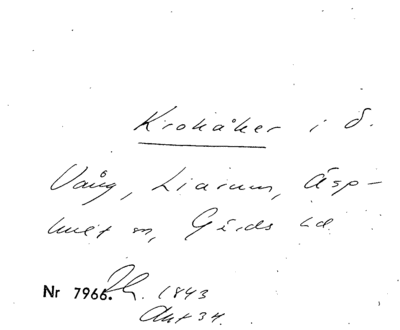 Krokåker i ö.
Vång, Liarum, Äsp-
huet sn, Gärds hd
Nr 7966. 1843
Akt 34.